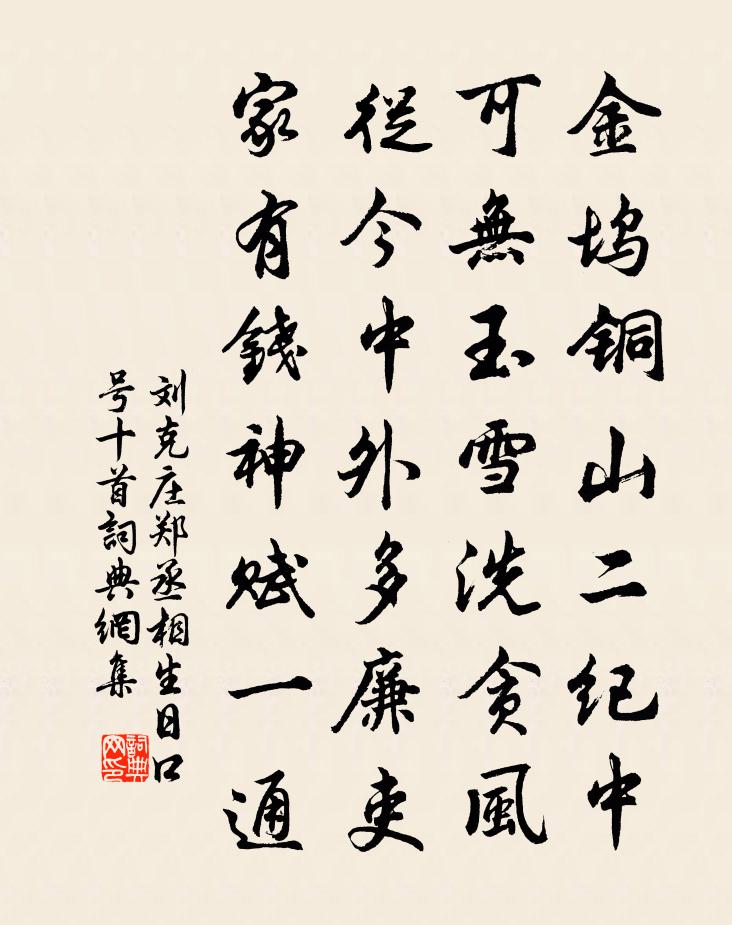 金坞铜山二纪中
可無玉雪洗贪風
從今中外多廉吏
家有錢神赋一通
刘克庄郑丞相生日口
号十首詞典網集
詞典網印